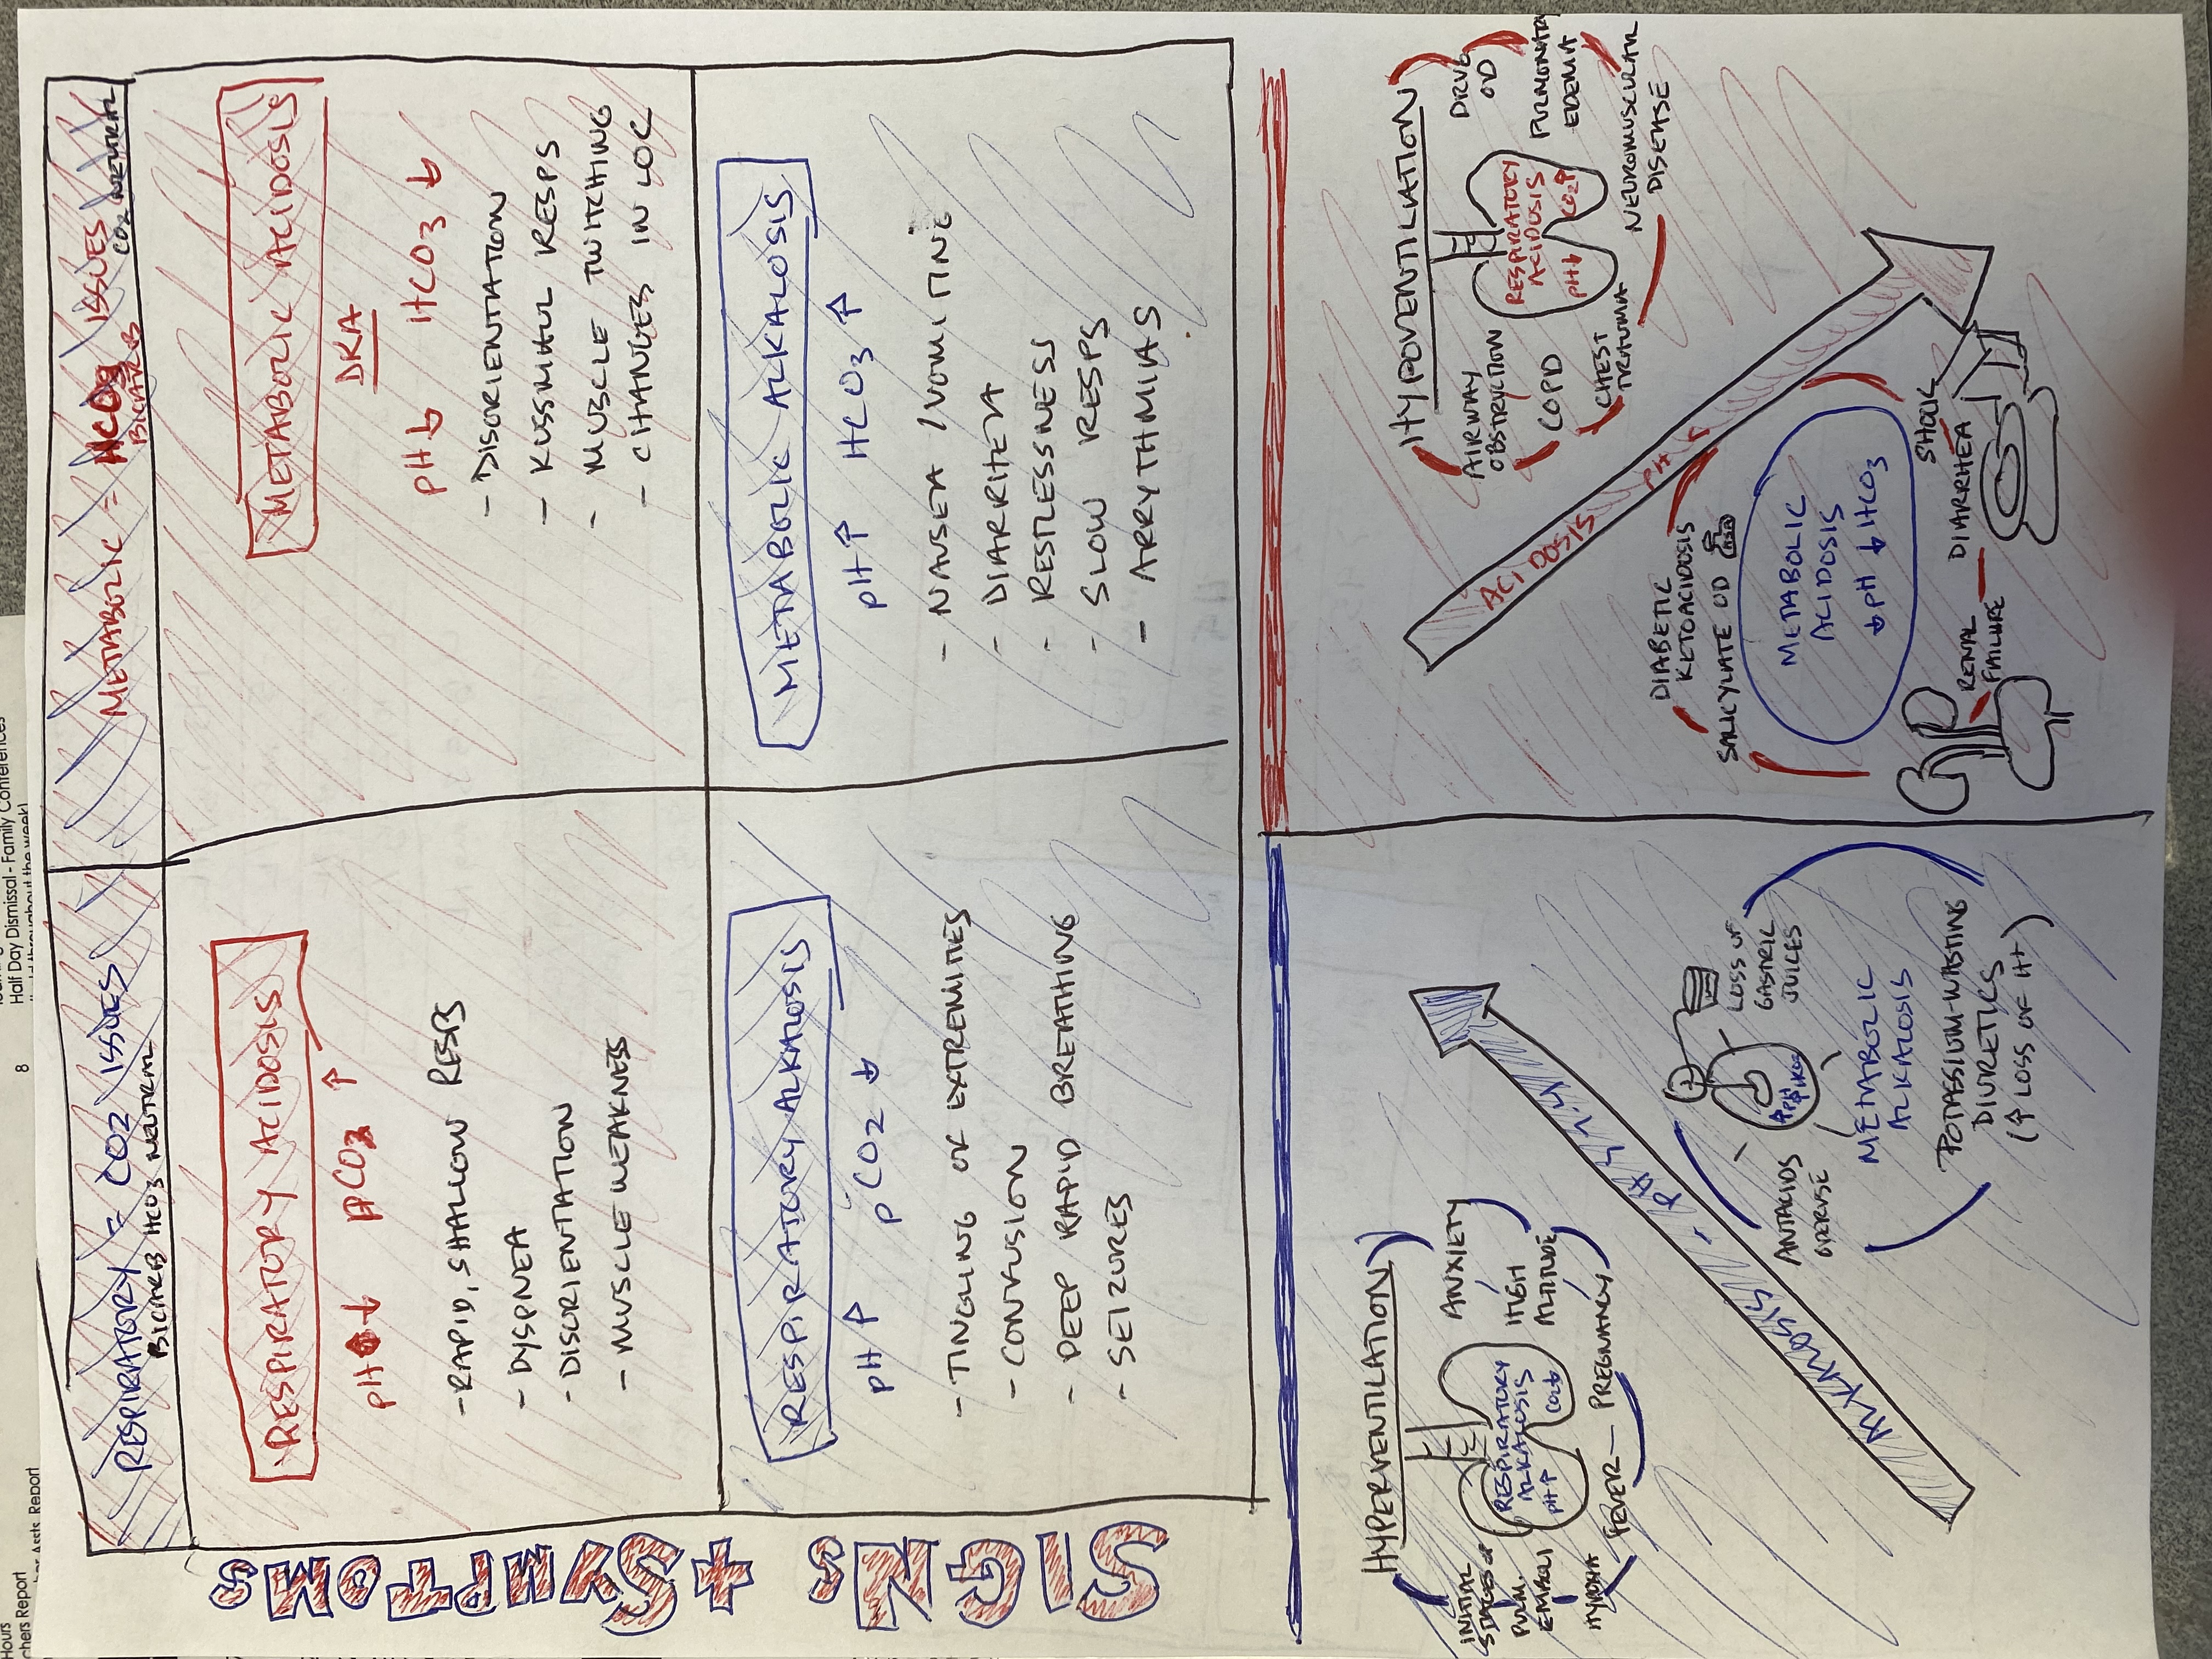 RESPIRATORY = CO2 ISSUES
BICARB HCO3 NEUTRAL
METABOLIC = HCO3 ISSUES
BICARB
CO2 NEUTRAL
SIGNS + SYMPTOMS
RESPIRATORY ACIDOSIS
pH ↓ pCO2 ↑
- RAPID, SHALLOW RESPS
- DYSPNEA
- DISORIENTATION
- MUSCLE WEAKNESS
METABOLIC ACIDOSIS
DKA
pH ↓ HCO3 ↓
- DISORIENTATION
- KUSSMAUL RESPS
- MUSCLE TWITCHING
- CHANGES IN LOC
RESPIRATORY ALKALOSIS
pH ↑ pCO2 ↓
- TINGLING OF EXTREMITIES
- CONFUSION
- DEEP RAPID BREATHING
- SEIZURES
METABOLIC ALKALOSIS
pH ↑ HCO3 ↑
- NAUSEA / VOMITING
- DIARRHEA
- RESTLESSNESS
- SLOW RESPS
- ARRYTHMIAS
HYPERVENTILATION
INITIAL
STAGES OF
PULM.
EMBOLI
HYPOXIA
RESPIRATORY
ALKALOSIS
PH↑ CO2↓
ANXIETY
HIGH
ALTITUDE
PREGNANCY
FEVER
ALKALOSIS
ANTACIDS
OVERUSE
LOSS OF
GASTRIC
JUICES
METABOLIC
ALKALOSIS
POTASSIUM-WASTING
DIURETICS
(↑ LOSS OF H+)
HYPOVENTILATION
AIRWAY
OBSTRUCTION
COPD
CHEST
TRAUMA
RESPIRATORY
ACIDOSIS
PH↓ CO2↑
DRUG
OD
PULMONARY
EDEMA
NEUROMUSCULAR
DISEASE
ACIDOSIS
DIABETIC
KETOACIDOSIS
SALICYLATE OD
METABOLIC
ACIDOSIS
↓ PH ↓ HCO3
RENAL
FAILURE
DIARRHEA
SHOCK
8
Half Day Dismissal - Family Conferences